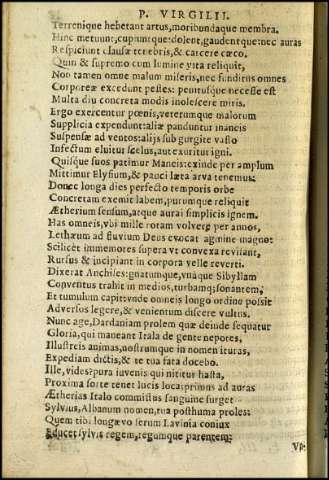 P. VIRGILII.
Terrenique hebetant artus, moribundaque membra.
Hinc metuunt, cupiuntque: dolent, gaudentque: nec auras
Respiciunt clausæ tenebris, & carcere cæco.
Quin & supremo cum lumine vita reliquit,
Non tamen omne malum miseris, nec funditus omnes
Corporeæ excedunt pestes: penitusque necesse est
Multa diu concreta modis inolescere miris.
Ergo exercentur pœnis, veterumque malorum
Supplicia expendunt: aliæ panduntur inaneis
Suspensæ ad ventos: aliis sub gurgite vasto
Infectum eluitur scelus, aut exuritur igni.
Quisque suos patimur Maneis: exinde per amplum
Mittimur Elysium, & pauci læta arva tenemus:
Donec longa dies perfecto temporis orbe
Concretam exemit labem, purumque reliquit
Ætherium sensum, atque aurai simplicis ignem.
Has omneis, vbi mille rotam volvere per annos,
Lethæum ad fluvium Deus evocat agmine magno:
Scilicet immemores supera vt convexa revisant,
Rursus & incipiant in corpora velle reverti.
Dixerat Anchises: gnatumque, vnaque Sibyllam
Conventus trahit in medios, turbamque sonantem,
Et tumulum capit: vnde omneis longo ordine possit
Adversos legere, & venientum discere vultus.
Nunc age, Dardaniam prolem quæ deinde sequatur
Gloria, qui maneant Itala de gente nepotes,
Illustreis animas, nostrumque in nomen ituras,
Expediam dictis, & te tua fata docebo.
Ille, vides? pura iuvenis qui nititur hasta,
Proxima sorte tenet lucis loca: primus ad auras
Ætherias Italo commistus sanguine surget
Sylvius, Albanum nomen, tua posthuma proles:
Quem tibi longævo serum Lavinia coniux
Educet sylvis regem, regumque parentem: